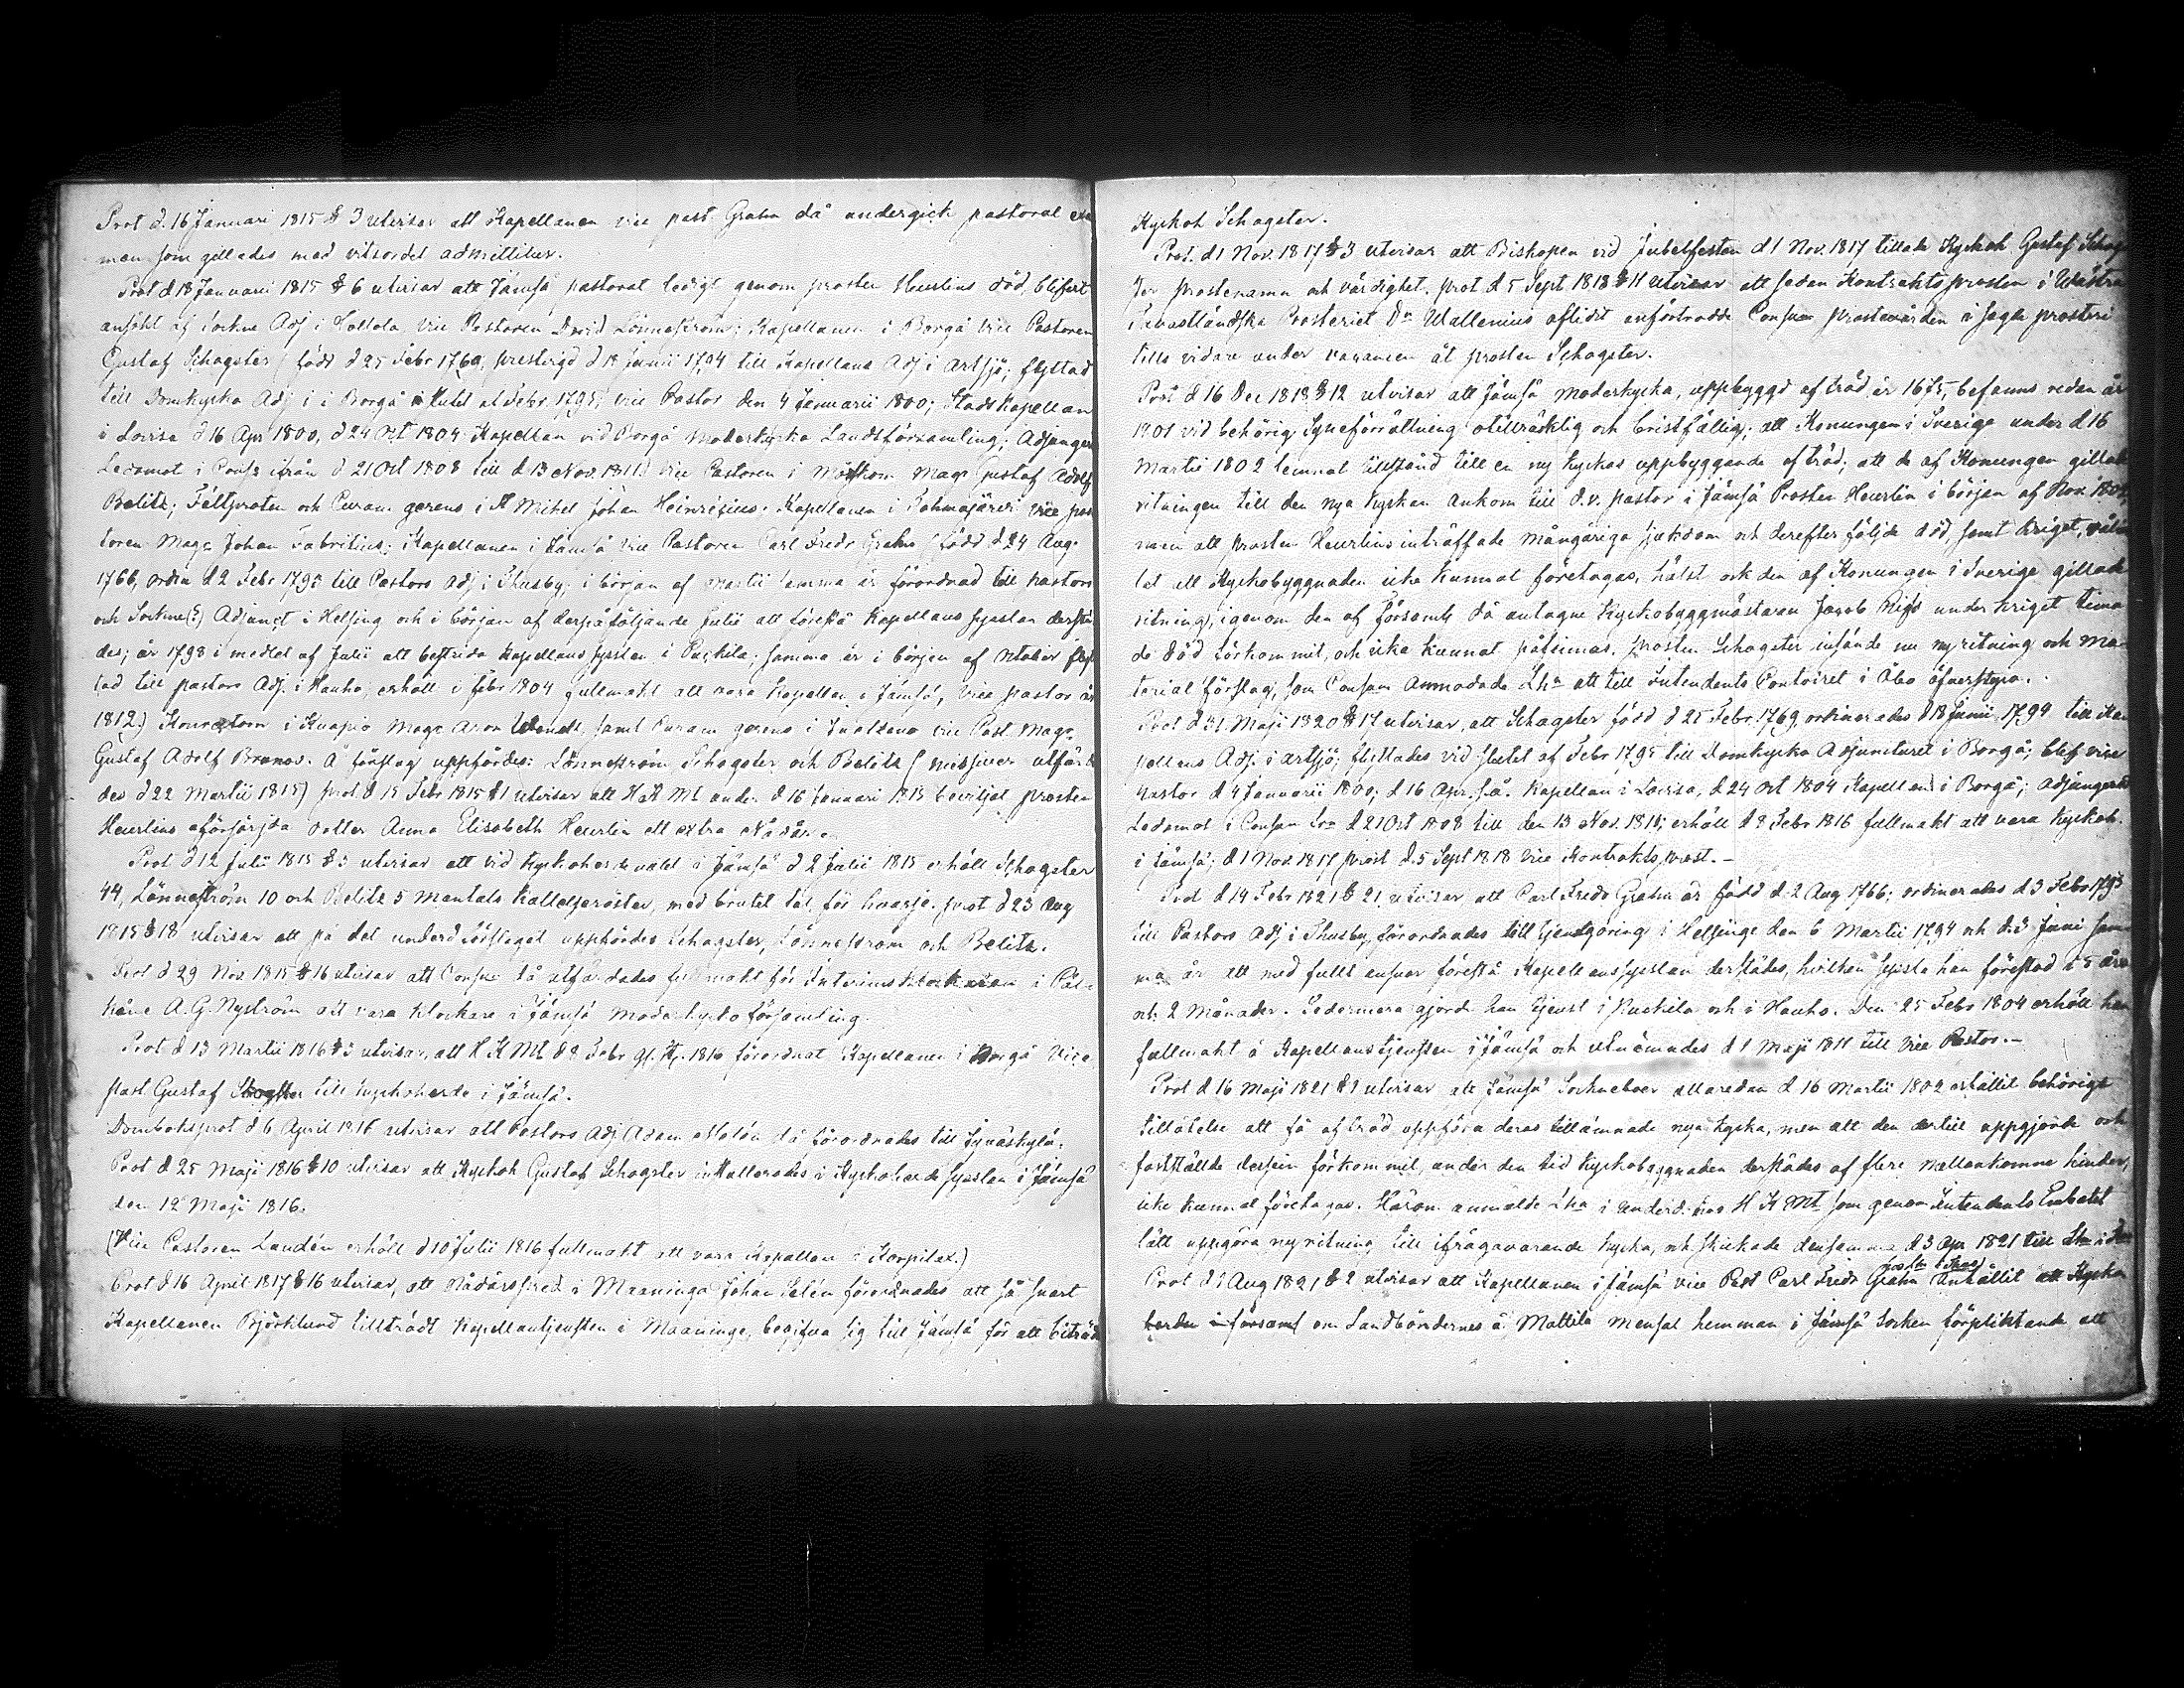 Prot d. 16 Januari 1815 § 3 utvisar att Kapellanen vice past. Grahn då undergick pastoral exa
men som gillades med vitsordet admittitur.
Prot d 18 Januarii 1815 § 6 utvisar att Jämsä pastorat ledigt genom prosten Heurlins död, blifvit
ansökt af Sockne Adj i Hollola vice Pastoren David Lönneström; Kapellanen i Borgå vice Pastoren
Gustaf Schogster (född d 25 Febr 1769, prestvigd d 18 Junii 1794 till Kapellans Adj i Artsjö; flyttad
till Domkyrko Adj i Borgå i slutet af Febr. 1795; vice Pastor den 4 Januarii 1800; Stads Kapellan
i Lovisa d 16 Apr 1800, d 24 Oct 1804 Kapellan vid Borgå moderkyrko Landsförsamling; Adjungerad
Ledamot i Cons: ifrån d 21 Oct 1808 till d 13 Nov. 1811) vice Pastoren i Mörskom Mag: Gustaf Adolf
Belitz; Fältprosten och Curam gerens i St Mickel Johan Heinricius; Kapellanen i Tohmajärvi vice pas
toren Mag: Johan Fabritius; Kapellanen i Jämsä vice Pastoren Carl Fredr Grahn (född d 24 Aug.
1766, ordin d 2 Febr 1793 till Pastors adj i Thusby; i början af Martii samma år förordnad till pastors
och Sockne(?) Adjunct i Helsing och i början af derpåföljande Julii att förestå Kapellans sysslan derstä
des; år 1798 i medlet af Julii att bestrida Kapellans sysslan i Puckila; samma år i början af October flyt
tad till pastors Adj. i Hauho, erhöll i febr 1804 fullmakt att vara Kapellan i Jämsä, vice pastor år
1812) Konrektorn i Kuopio Mag: Aron Wendell samt Curam gerens i Tuolzens vice Past. Mag:
Gustaf Adolf Branov. Å förslag uppfördes: Lönneström, Schogster och Belitz (missiver utfärda
des d 22 Martii 1815) prot d 15 Febr 1815 § 1 utvisar att H K Mt under d 16 Januari 1815 beviljat prosten
Heurlins oförsörjda dotter Anna Elisabeth Heurlin ett extra Nådår.
Prot d 12 Julii 1815 § 5 utvisar att vid Kyrkoherde valet i Jämsä d 2 Julii 1815 erhöll Schogster
44, Lönneström 10 och Belitz 5 Mantals Kallelseröster, med brutet tal för hvarje. prot d 23 Aug
1815 § 18 utvisar att på det underd. förslaget uppfördes Schogster, Lönneström och Belitz.
Prot d 29 Nov 1815 § 16 utvisar att Cons: då utfärdades fullmakt för Interims klockaren i Päl
käne A. G. Nyström att vara Klockare i Jämsä moderkyrko församling.
Prot d 13 Martii 1816 § 3 utvisar, att H K Mt d 8 Febr 1816 förordnat Kapellanen i Borgå Vice
past Gustaf Schogster till kyrkoherde i Jämsä.
Domboksprot d 6 April 1816 utvisar att Pastors Adj Adam Molén då förordnades till Jyväskylä.
Prot d 25 Maji 1816 § 10 utvisar att Kyrkoh Gustaf Schogster installerades i Kyrkoherde sysslan i Jämsä
den 12 Maji 1816.
(Vice Pastoren Landén erhöll d 10 Julii 1816 fullmakt att vara Kapellan i Korpilax.)
Prot d 16 April 1817 § 16 utvisar, att Nådårspred. i Maaninga Johan Salén förordnades att så snart
Kapellanen Björklund tillträdt Kapellantjensten i Maaninga, begifva sig till Jämsä för att biträda
Kyrkoh Schogster.
Prot. d 1 Nov. 1817 § 3 utvisar att Biskopen vid Jubelfesten d 1 Nov. 1817 tillade Kyrkoh Gustaf Schogs
ter prostenamn och värdighet. prot d 5 Sept 1818 § 11 utvisar att sedan Kontraktsprosten i Westra
Tavastländska Prosteriet Dr Wallenius aflidit anförtrodde Consm prostevården i sagde prosteri
tills vidare under vacansen åt prosten Schogster.
Prot d 16 Dec 1818 § 12 utvisar att Jämsä moderkyrka, uppbyggd af träd, år 1675, befanns redan år
1801 vid behörig Syneförrättning otillräcklig och bristfällig; att Konungen i Sverige under d 16
Martii 1802 lemnat tillstånd till en ny kyrkas uppbyggande af träd; att de af Konungen gillade
ritningen till den nya kyrkan ankom till d.v. pastor i Jämsä Prosten Heurlin i början af Nov. 1804
men att prosten Heurlins inträffade mångåriga sjukdom och derefter följde död, samt kriget, vållat
let att Kyrkobyggnaden icke kunnat företagas, hälst ock den af Konungen i Sverige gillade
ritning, igenom den af Församl. då antagne Kyrkobyggmästaren Jacob Rijfs under kriget tima
de död förkommit, och icke kunnat påfinnas. Prosten Schogster insände nu ny ritning och Ma
terial förslag, som Consm anmodade Lhn att till Intendents Contoiret i Åbo öfverstyra.
Prot d 31 Maji 1820 § 17 utvisar, att Schogster född d 25 Febr. 1769, ordinerades d 18 Junii 1794 till Ka
pellans Adj. i Artsjö; flyttades vid slutet af Febr 1795 till Domkyrko Adjuncturet i Borgå; blef vice
pastor d 4 Januarii 1800; d 16 Apr. s.å. Kapellan i Lovisa, d 24 Oct 1804 Kapellan i Borgå; adjungerad
Ledamot i Consm från d 21 Oct 1808 till den 13 Nov. 1811; erhöll d 8 Febr 1816 fullmakt att vara Kyrkoh.
i Jämsä; d 1 Nov. 1817 prost d. 5 Sept 1818 vice Kontrakts prost.
Prot d 14 Febr 1821 § 21 utvisar att Carl Fredr Grahn är född d. 2 Aug 1766; ordinerades d 3 Febr 1793
till Pastors Adj i Thusby, förordnades till tjenstgöring i Helsinge den 6 Martii 1794 och d. 3 Juni sam
ma år att med fullt ansvar förestå Kapellanssysslan derstädes, hvilken syssla han förestod i 5 år
och 2 Månader. Sedermera gjorde han tjenst i Puckila och i Hauho. Den 25 Febr 1804 erhöll han
fullmakt å Kapellanstjensten i Jämsä och utnämndes d 1 Maji 1811 till Vice Pastor.
Prot d 16 Maji 1821 § 1 utvisar att Jämsä Sockneboer allaredan d 16 Martii 1802 erhållit behörigt
tillåtelse att få af träd uppföra deras tillämnade nya kyrka, men att den dertill uppgjorde och
fastställde dessein förkommit, under den tid Kyrkobyggnaden derstädes af flere mellankomne hinder,
icke kunnat företagas. Härom anmälde Lhn i underd. hos H K Mt som genom Intendents Embetet
lätt uppgöra ny ritning till ifrågavarande kyrka, och skickade densamma d 3 Apr 1821 till
Prot d 1 Aug 1821 § 2 utvisar att Kapellanen i Jämsä vice Past Carl Fredr Grahn anhållit att Kyrko
herden i församl om Landböndernes å Mattila mensal hemman i Jämsä socken förpliktande att